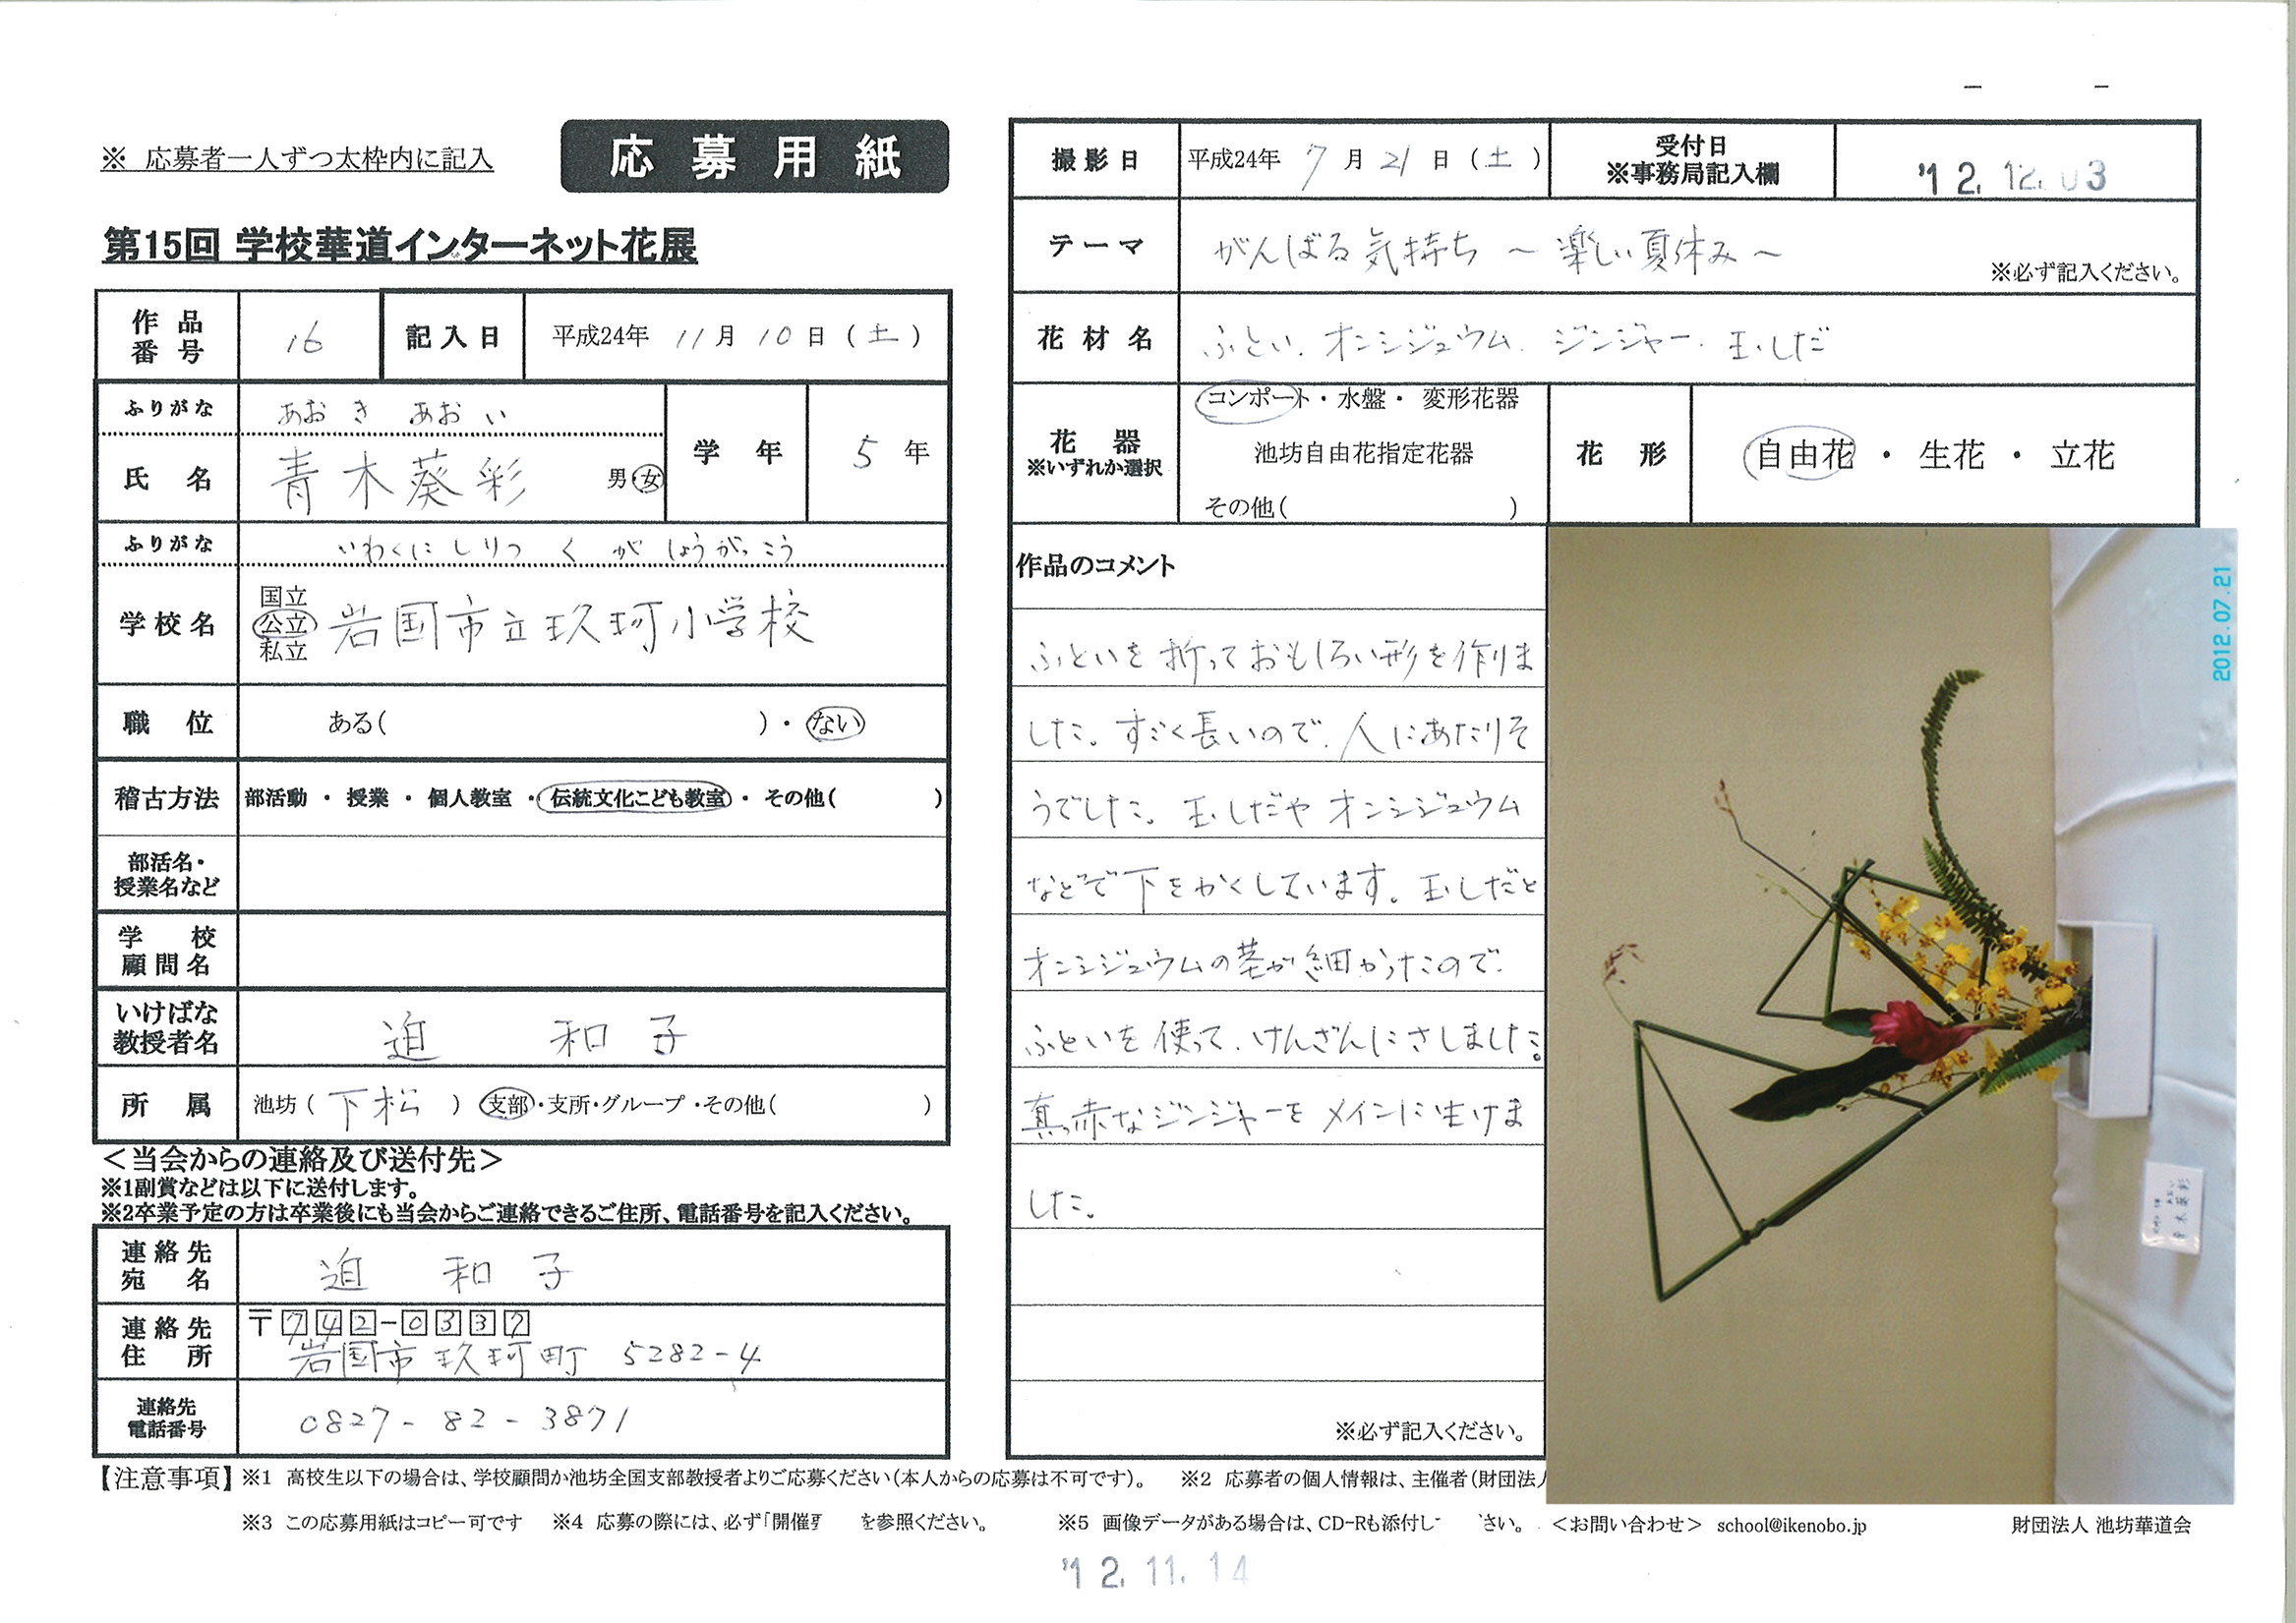 ※ 応募者一人ずつ太枠内に記入
応募用紙
第15回 学校華道インターネット花展
作品番号 16 記入日 平成24年 11月 10日 (土)
ふりがな あおき あおい
氏名 青木葵彩 男・女 学年 5年
ふりがな いわくにしりつ くが しょうがっこう
学校名 国立 公立 私立 岩国市立玖珂小学校
職位 ある( )・ない
稽古方法 部活動 ・ 授業 ・ 個人教室 ・ 伝統文化こども教室 ・ その他( )
部活名・授業名など
学校顧問名
いけばな教授者名 迫 和子
所属 池坊 ( 下松 ) 支部・支所・グループ ・その他( )
<当会からの連絡及び送付先>
※1副賞などは以下に送付します。
※2卒業予定の方は卒業後にも当会からご連絡できるご住所、電話番号を記入ください。
連絡先宛名 迫 和子
連絡先住所 〒742-0337
岩国市玖珂町 5282-4
連絡先電話番号 0827-82-3871
撮影日 平成24年 7月 21日 (土) 受付日 ※事務局記入欄 '12.12.03
テーマ がんばる気持ち ~楽しい夏休み~ ※必ず記入ください。
花材名 ふとい、オンシジュウム、ジンジャー、玉しだ
花器 ※いずれか選択 コンポート・水盤・変形花器
池坊自由花指定花器
その他( )
花形 自由花 ・ 生花 ・ 立花
作品のコメント
ふといを折っておもしろい形を作りま
した。すごく長いので、人にあたりそ
うでした。玉しだやオンシジュウム
などで下をかくしています。玉しだと
オンシジュウムの茎が細かったので、
ふといを使って、けんざんにさしました。
真っ赤なジンジャーをメインに生けま
した。
※必ず記入ください。
2012.07.21
青木葵彩
【注意事項】 ※1 高校生以下の場合は、学校顧問か池坊全国支部教授者よりご応募ください(本人からの応募は不可です)。 ※2 応募者の個人情報は、主催者(財団法人
※3 この応募用紙はコピー可です ※4 応募の際には、必ず「開催 を参照ください。 ※5 画像データがある場合は、CD-Rも添付し さい。 <お問い合わせ> school@ikenobo.jp 財団法人 池坊華道会
'12.11.14